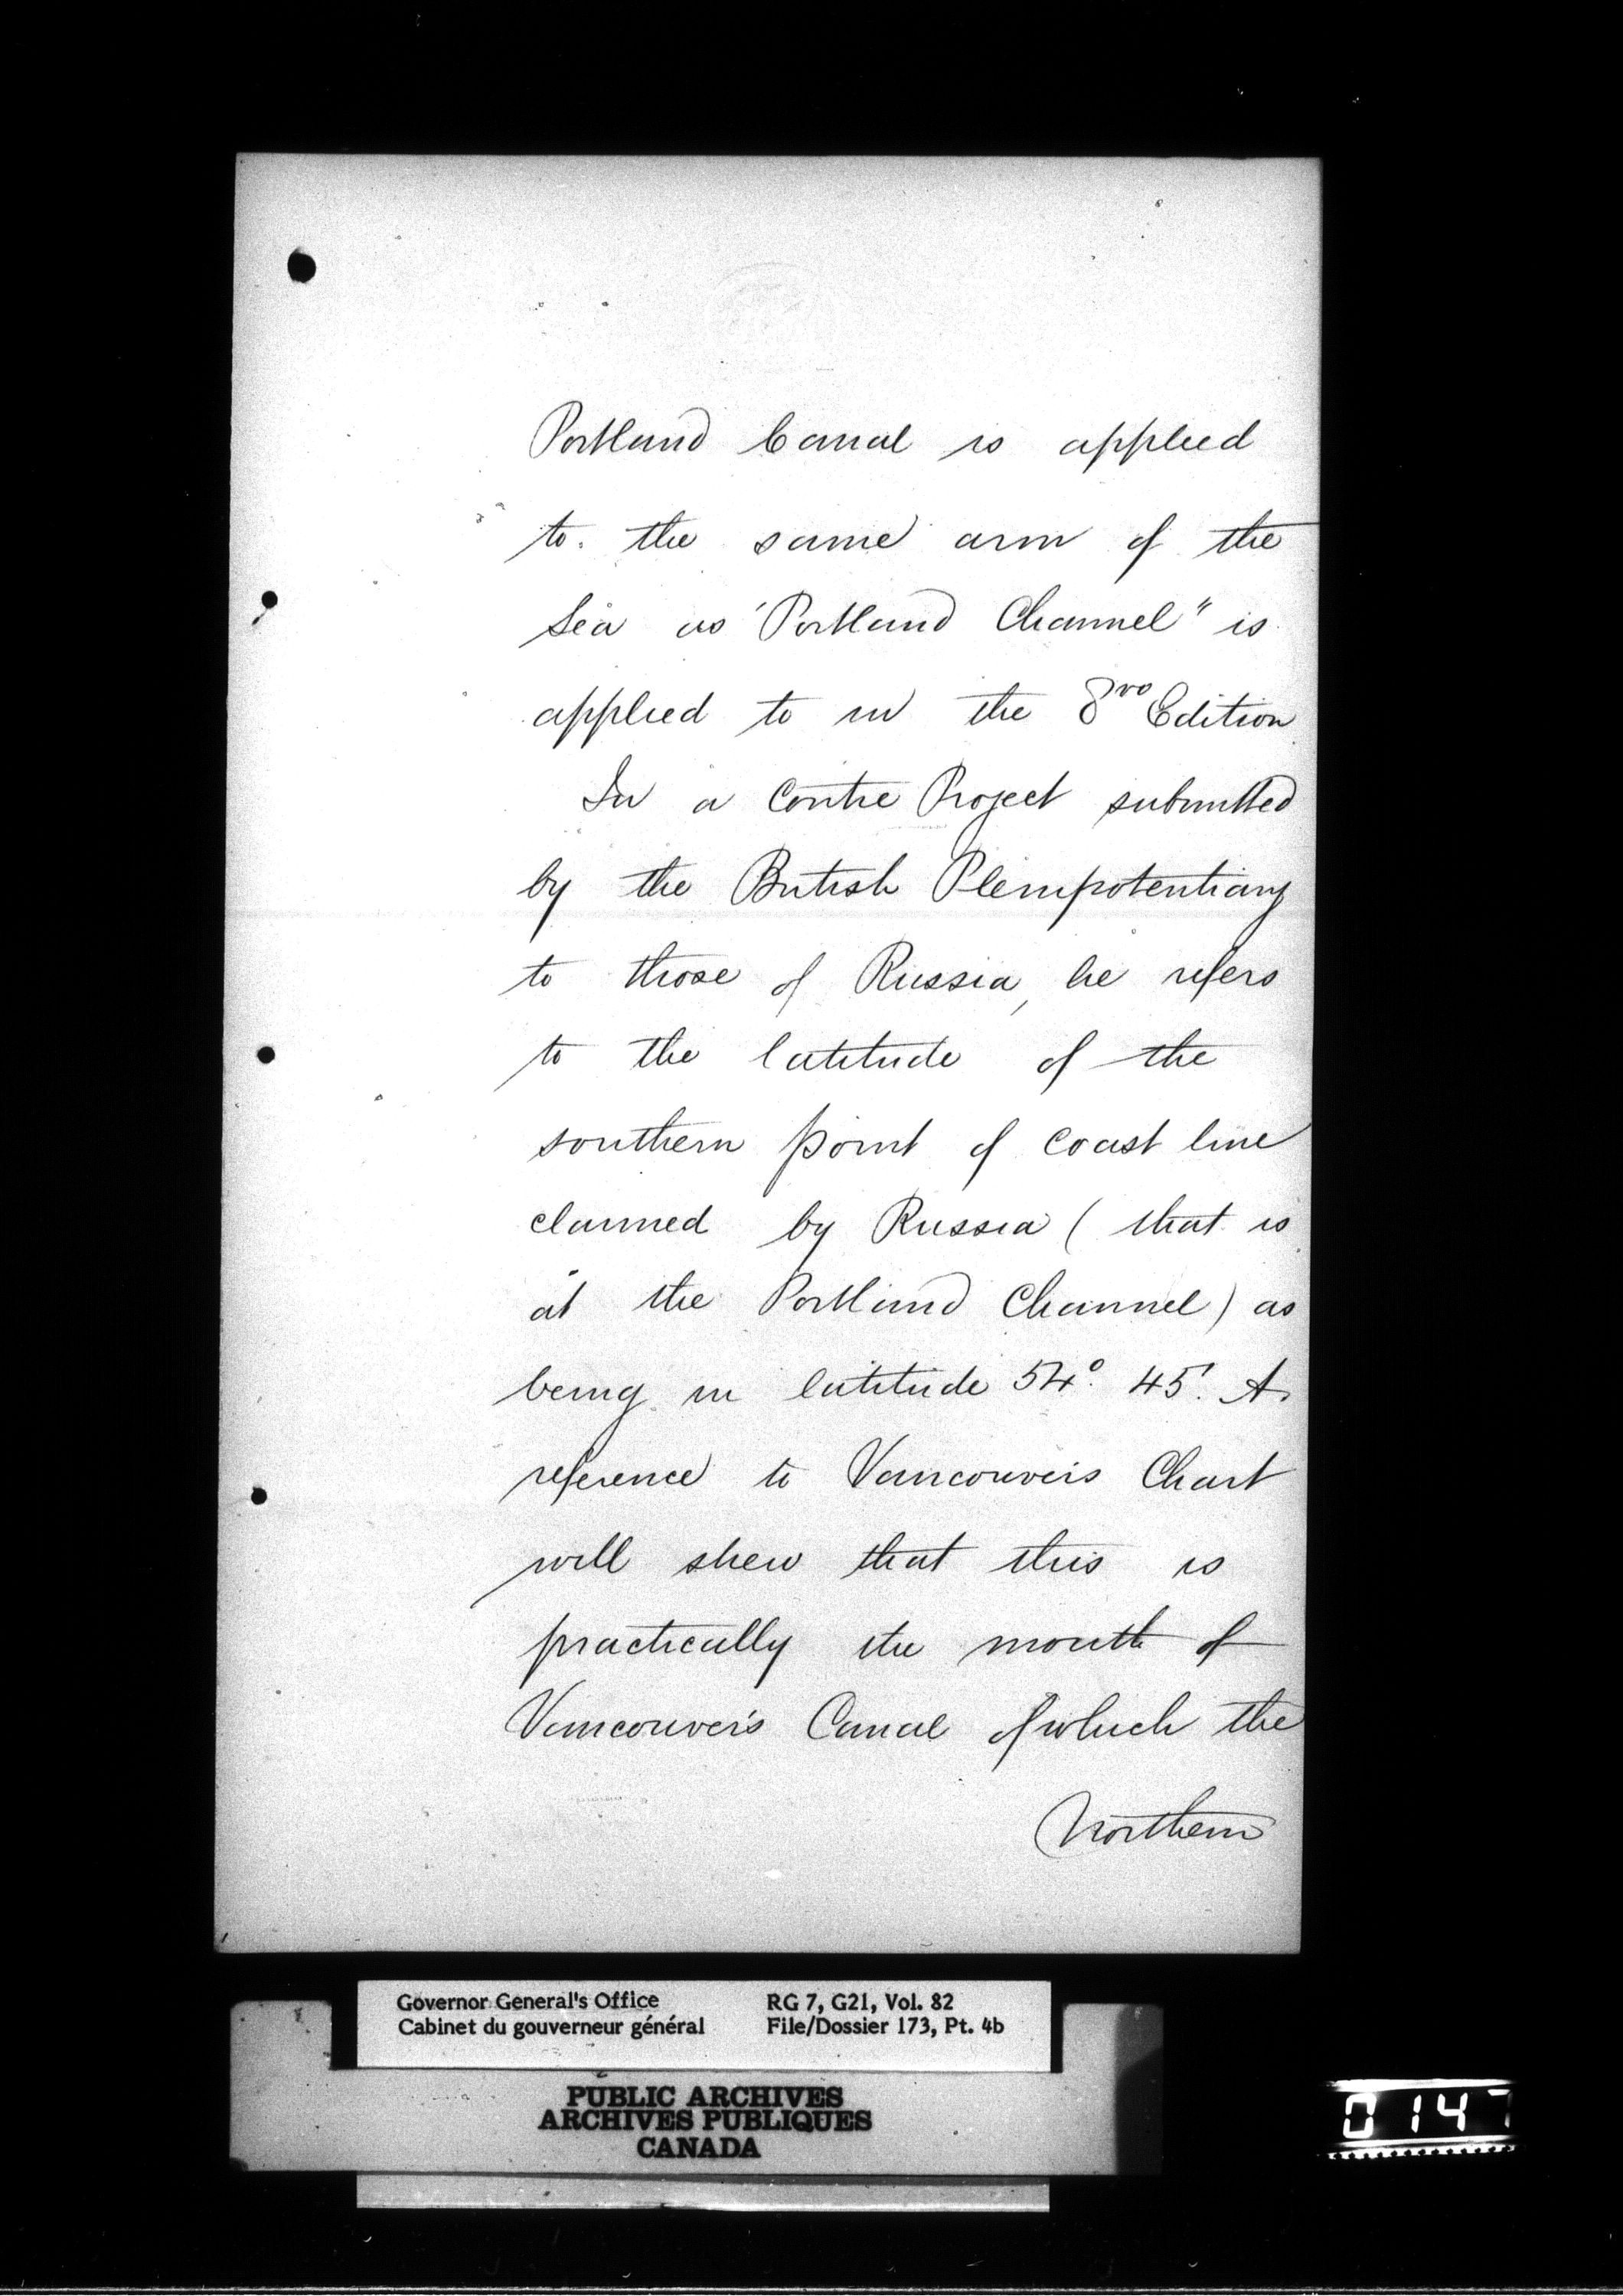 Portland Canal is applied
to. the same arm of the
Sea as "Portland Channel" is
applied to in the 8vo Edition
In a Contre Project submitted
by the British Plenipotentiary
to those of Russia, he refers
to the latitude of the
southern point of coast line
claimed by Russia ( that is
at the Portland Channel) as
being in latitude 54°. 45'. A.
reference to Vancouver's Chart
will shew that this is
practically the mouth of
Vancouver's Canal of which the
Northern
Governor General's Office
Cabinet du gouverneur général
RG 7, G21, Vol. 82
File/Dossier 173, Pt. 4b
PUBLIC ARCHIVES
ARCHIVES PUBLIQUES
CANADA
0147